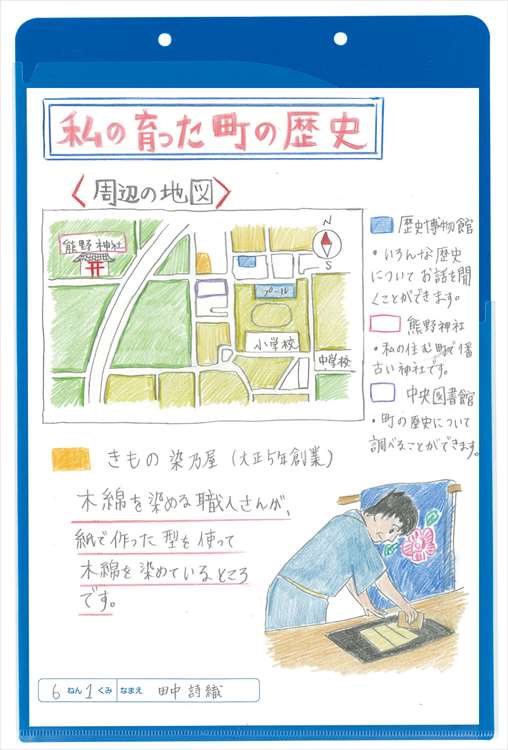 私の育った町の歴史
〈周辺の地図〉
熊野神社
N
S
プール
小学校
中学校
歴史博物館
・いろんな歴史
についてお話を聞
くことができます。
熊野神社
・私の住む町で1番
古い神社です。
中央図書館
・町の歴史について
調べることができます。
きもの 染乃屋 (大正5年創業)
木綿を染める職人さんが、
紙で作った型を使って
木綿を染めているところ
です。
6 ねん 1 くみ なまえ 田中 詩織